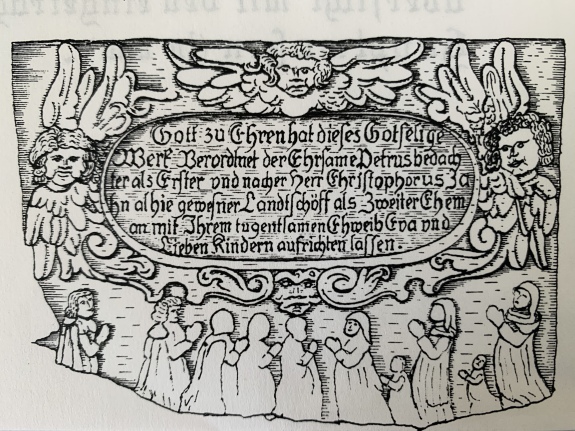 Gott zu Ehren hat dieses Gotselige
Werk Verordnet der Ehrsame Petrus bedach
ter als Erster vnd nacher Herr Christophorus Ja
hn alhie gewesner Landtschöff als Zweiter Ehem
an mit Ihrem tugentsamen Ehweib Eva vnd
Lieben Kindern aufrichten lassen.